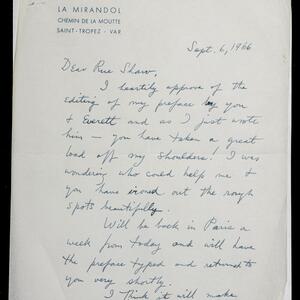 LA MIRANDOL
CHEMIN DE LA MOUTTE
SAINT-TROPEZ - VAR
Sept. 6, 1966
Dear Rue Shaw,
I heartily approve of the
editing of my preface by you
& Everett and as I just wrote
him – you have taken a great
load off my shoulders! I was
wondering who could help me &
you have ironed out the rough
spots beautifully.
Will be back in Paris a
week from today and will have
the preface typed and returned to
you very shortly.
I think it will make